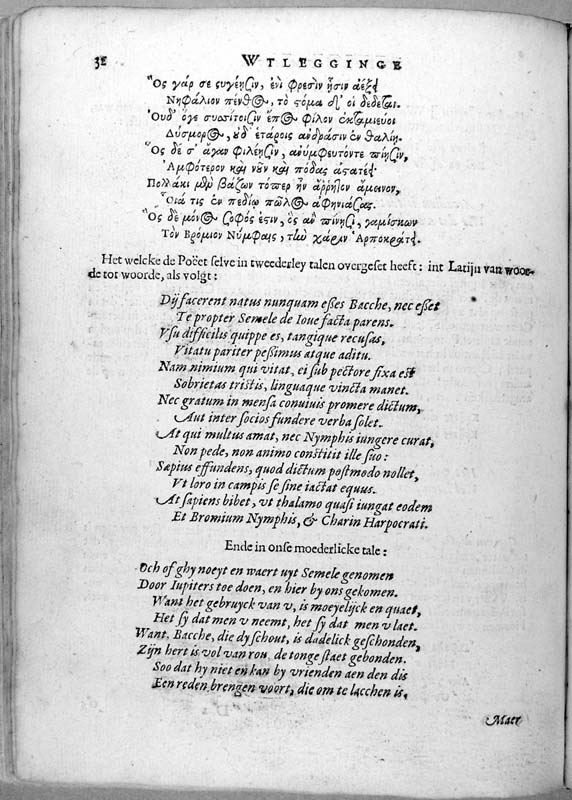 32 WTLEGGINGE
Ὃς γάρ σε ςυγέησιν, ἐνὶ φρεσὶν ᾗσιν ἀέξει
Νηφάλιον πένθος, τὸ ςόμα δ' οἱ δέδεται.
Οὐδ' ὅγε συσσίτοισιν ἔπος φίλον
Δύσμορος, οὐδ' ἑτάροις ἀνδράσιν ἐν θαλίῃ.
Ὃς δέ σ' ἄγαν φιλέησιν, ἀνυμφεύτοντε πίησιν,
Ἀμφότερον καὶ νοῦν καὶ πόδας
Πολλάκι μὲν βάζων τόπερ ἦν ἄρρητον ἄμεινον,
Οἷά τις ἐν πεδίῳ πῶλος ἀφηνιάσας.
Ὃς δὲ μόνος σοφός ἐςιν, ὃς ἂν πίνησι, γαμίσκων
Τὸν Βρόμιον Νύμφαις, τὴν χάριν Ἁρποκράτει.
Het welcke de Poëet selve in tweederley talen overgeset heeft: int Latijn van woor-
de tot woorde, als volgt:
Dij facerent natus nunquam esses Bacche, nec esset
Te propter Semele de Ioue facta parens.
Vsu difficilis quippe es, tangique recusas,
Vitatu pariter pessimus atque aditu.
Nam nimium qui vitat, ei sub pectore fixa est
Sobrietas tristis, linguaque vincta manet.
Nec gratum in mensa conuiuis promere dictum,
Aut inter socios fundere verba solet.
At qui multus amat, nec Nymphis iungere curat,
Non pede, non animo constitit ille suo:
Sæpius effundens, quod dictum postmodo nollet,
Vt loro in campis se sine iactat equus.
At sapiens bibet, vt thalamo quasi iungat eodem
Et Bromium Nymphis, & Charin Harpocrati.
Ende in onse moederlicke tale:
Och of ghy noeyt en waert uyt Semele genomen
Door Iupiters toe doen, en hier by ons gekomen.
Want het gebruyck van v, is moeyelijck en quaet,
Het sy dat men v neemt, het sy dat men v laet.
Want, Bacche, die dy schout, is dadelick geschonden,
Zijn hert is vol van rou, de tonge staet gebonden.
Soo dat hy niet en kan by vrienden aen den dis
Een reden brengen voort, die om te lacchen is,
Maer